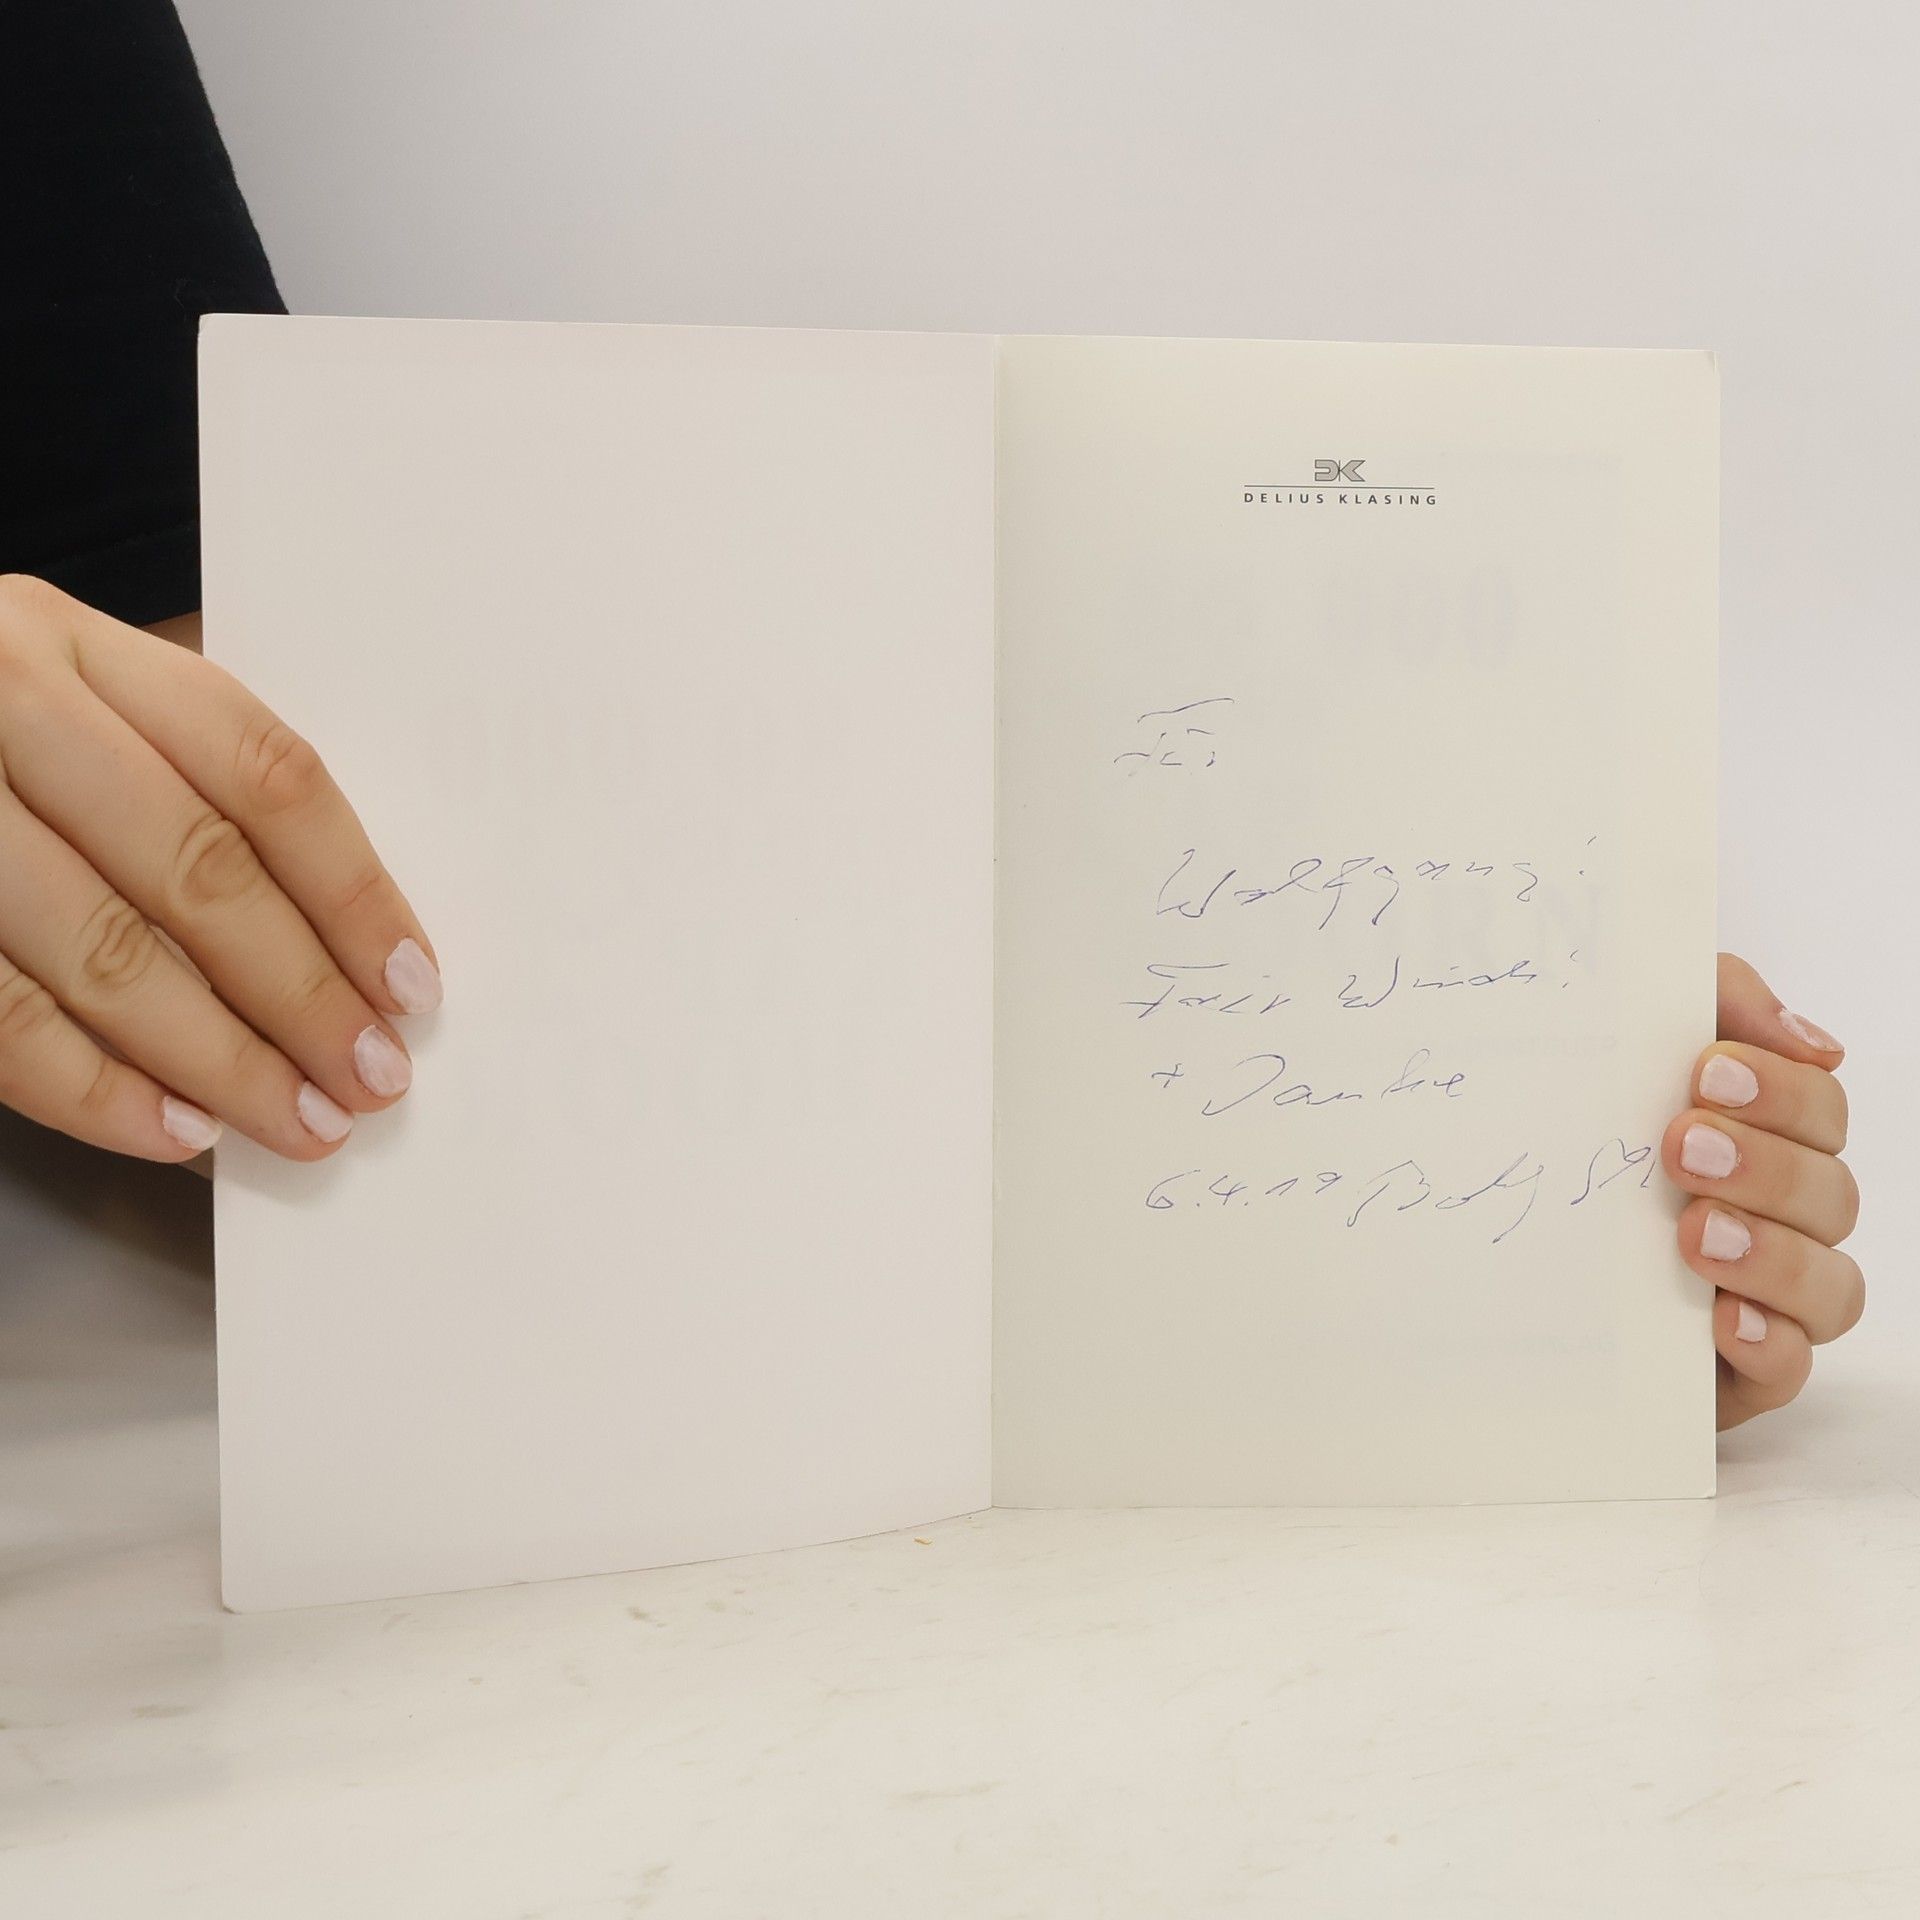 DK
DELIUS KLASING
Für
Wolfgang!
Fair Winds!
+ Danke
6.4.19 Bobby